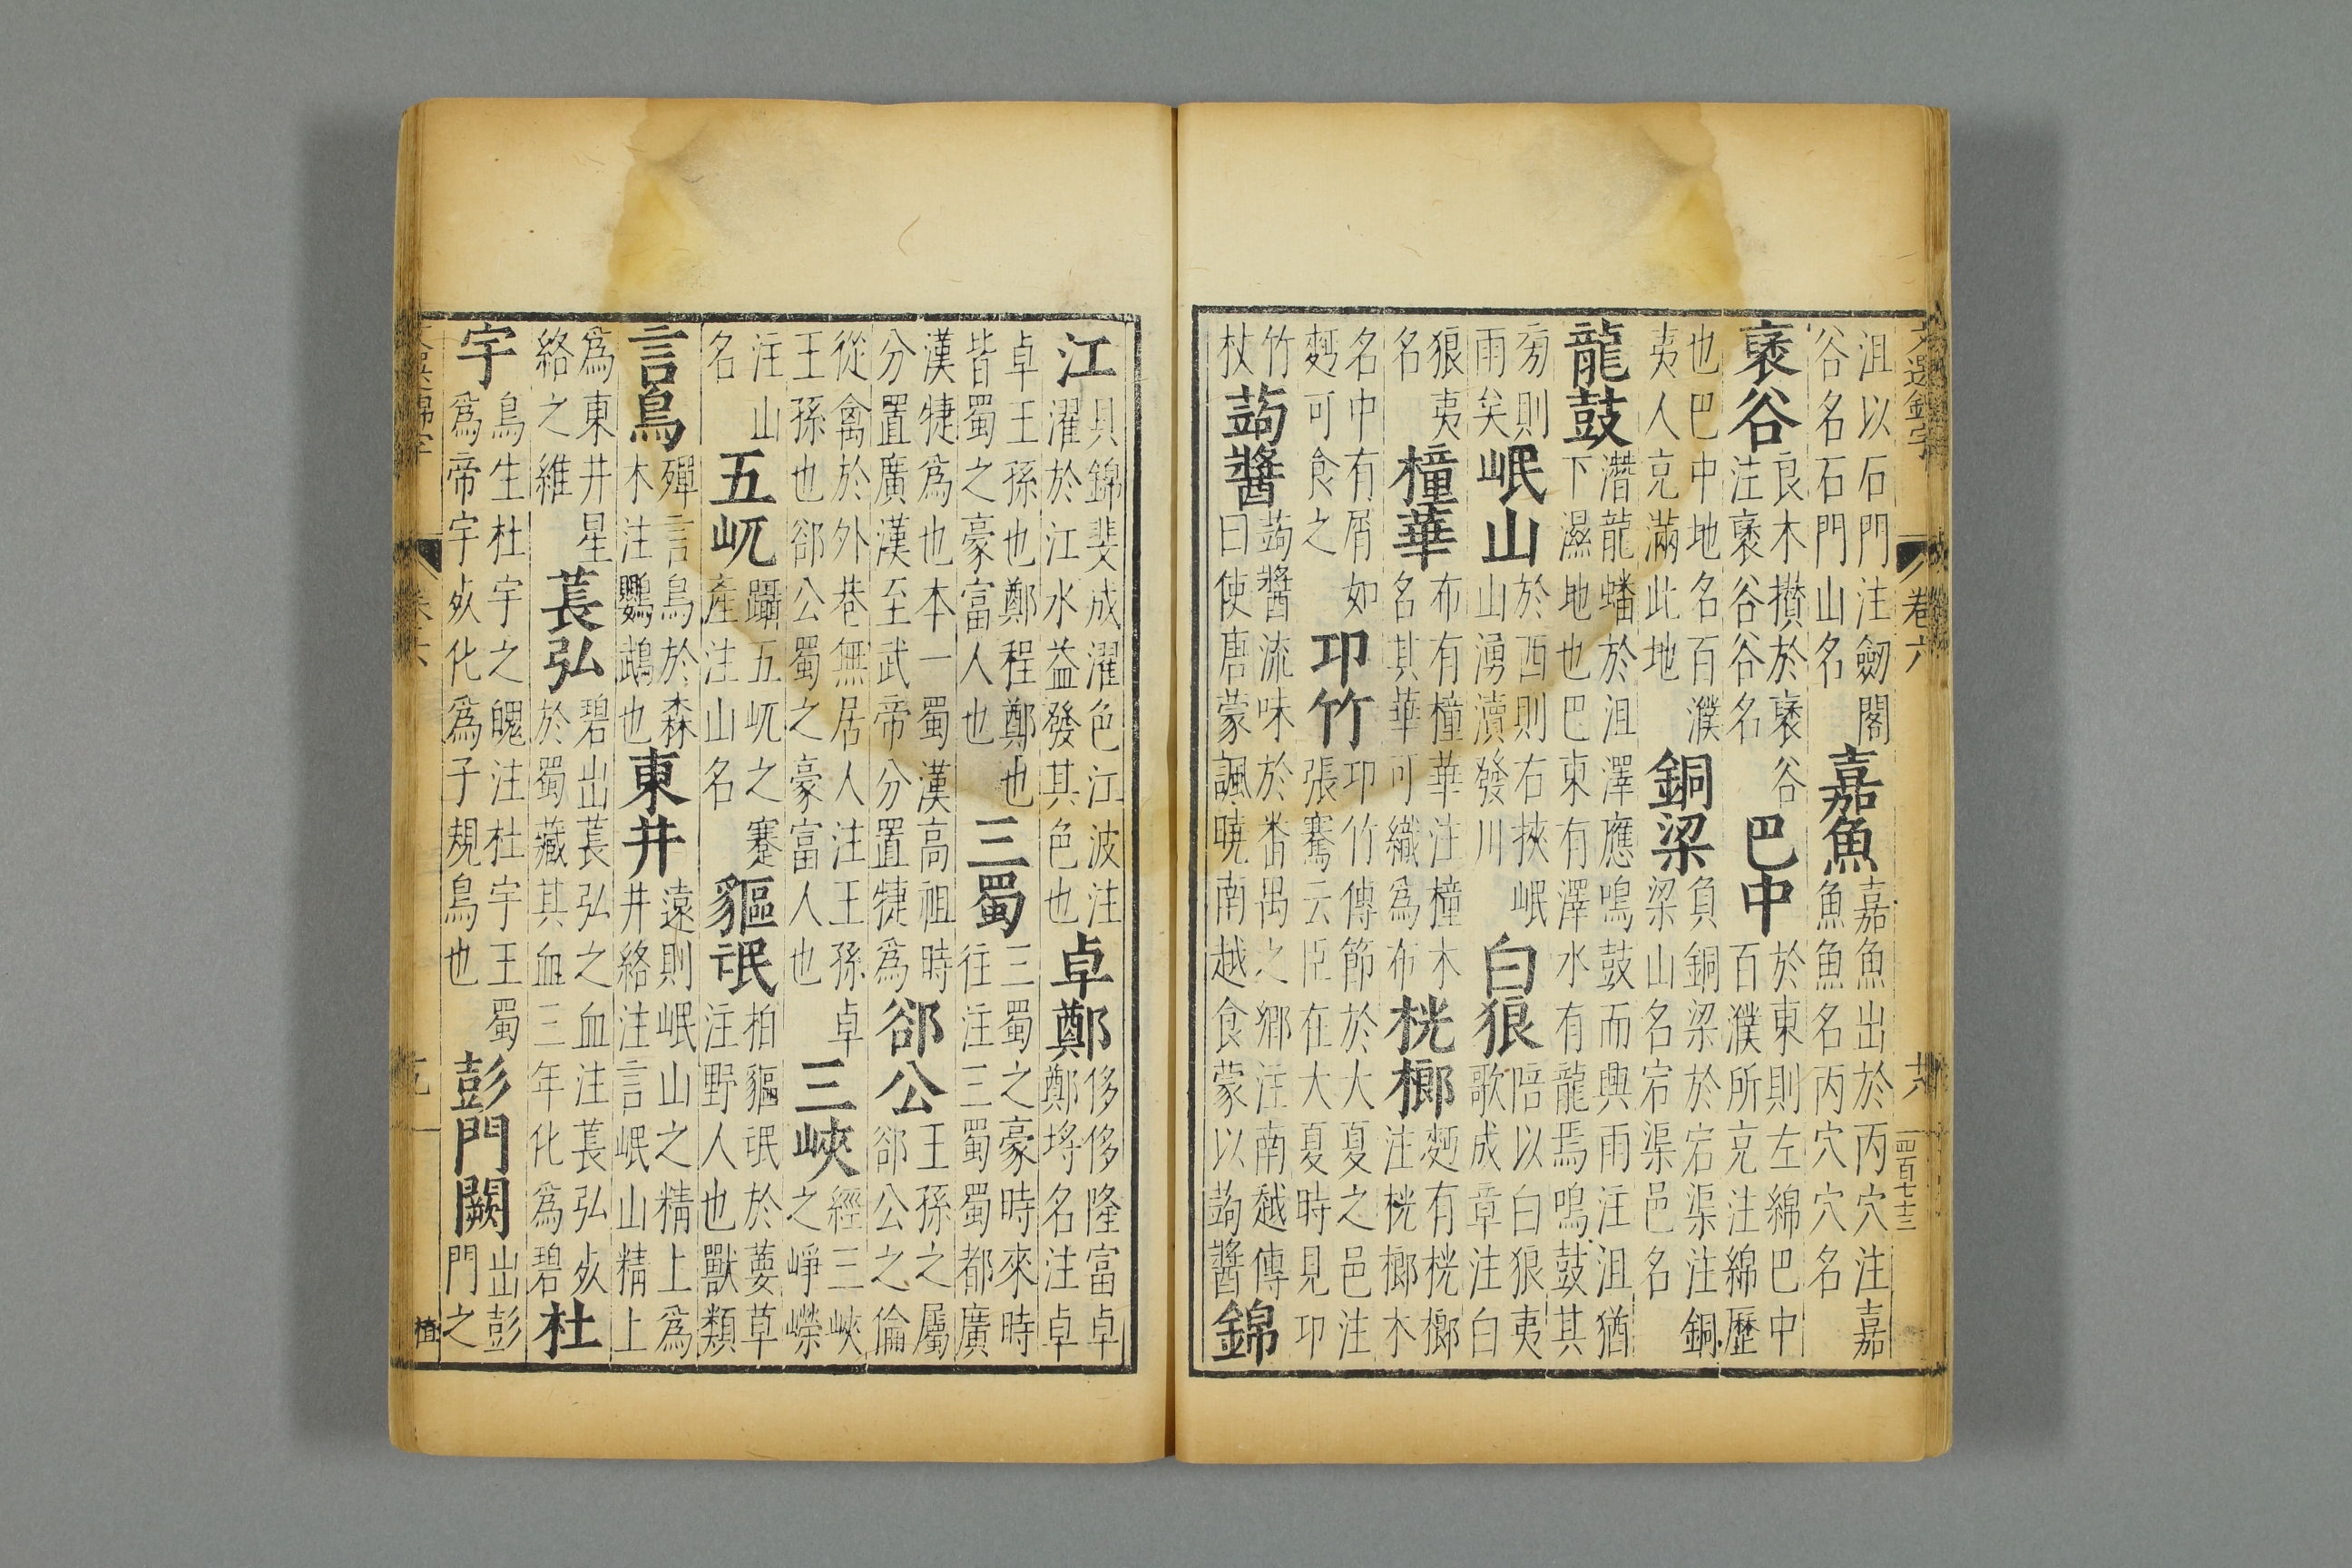 文選錦字 卷六 十八 四百七十三
沮以石門注劒閣谷名石門山名嘉魚嘉魚出於丙穴注嘉魚魚名丙穴穴名
褒谷良木攅於褒谷注褒谷谷名巴中於東則左綿巴中百濮所充注綿歷
也巴中地名百濮夷人充滿此地銅梁負銅梁於宕渠注銅梁山名宕渠邑名
龍鼓潛龍蟠於沮澤應鳴鼓而興雨注沮猶下濕地也巴東有澤水有龍焉鳴鼓其
旁則雨矣岷山於西則右挾岷山湧瀆發川白狼陪以白狼夷歌成章注白
狼夷名橦華布有橦華注橦木名其華可織為布桄榔麪有桄榔注桄榔木
名中有屑如麪可食之邛竹邛竹傳節於大夏之邑注張騫云臣在大夏時見邛
竹杖蒟醬蒟醬流味於番禺之鄉注南越傳曰使唐蒙諷曉南越食蒙以蒟醬錦
江貝錦斐成濯色江波注濯於江水益發其色也卓鄭侈侈隆富卓鄭埒名注卓
卓王孫也鄭程鄭也皆蜀之豪富人也三蜀三蜀之豪時來時往注三蜀蜀都廣
漢犍為也本一蜀漢高祖時分置廣漢至武帝分置犍為郤公王孫之屬郤公之倫
從禽於外巷無居人注王孫卓王孫也郤公蜀之豪富人也三峽經三峽之崢嶸
注山名五屼躡五屼之蹇產注山名貙氓柏貙氓於葽草注野人也獸類
言鳥殫言鳥於森木注鸚鵡也東井遠則岷山之精上為井絡注言岷山精上
為東井星絡之維萇弘碧出萇弘之血注萇弘死於蜀藏其血三年化為碧杜
宇鳥生杜宇之魄注杜宇王蜀為帝宇死化為子規鳥也彭門闕出彭門之